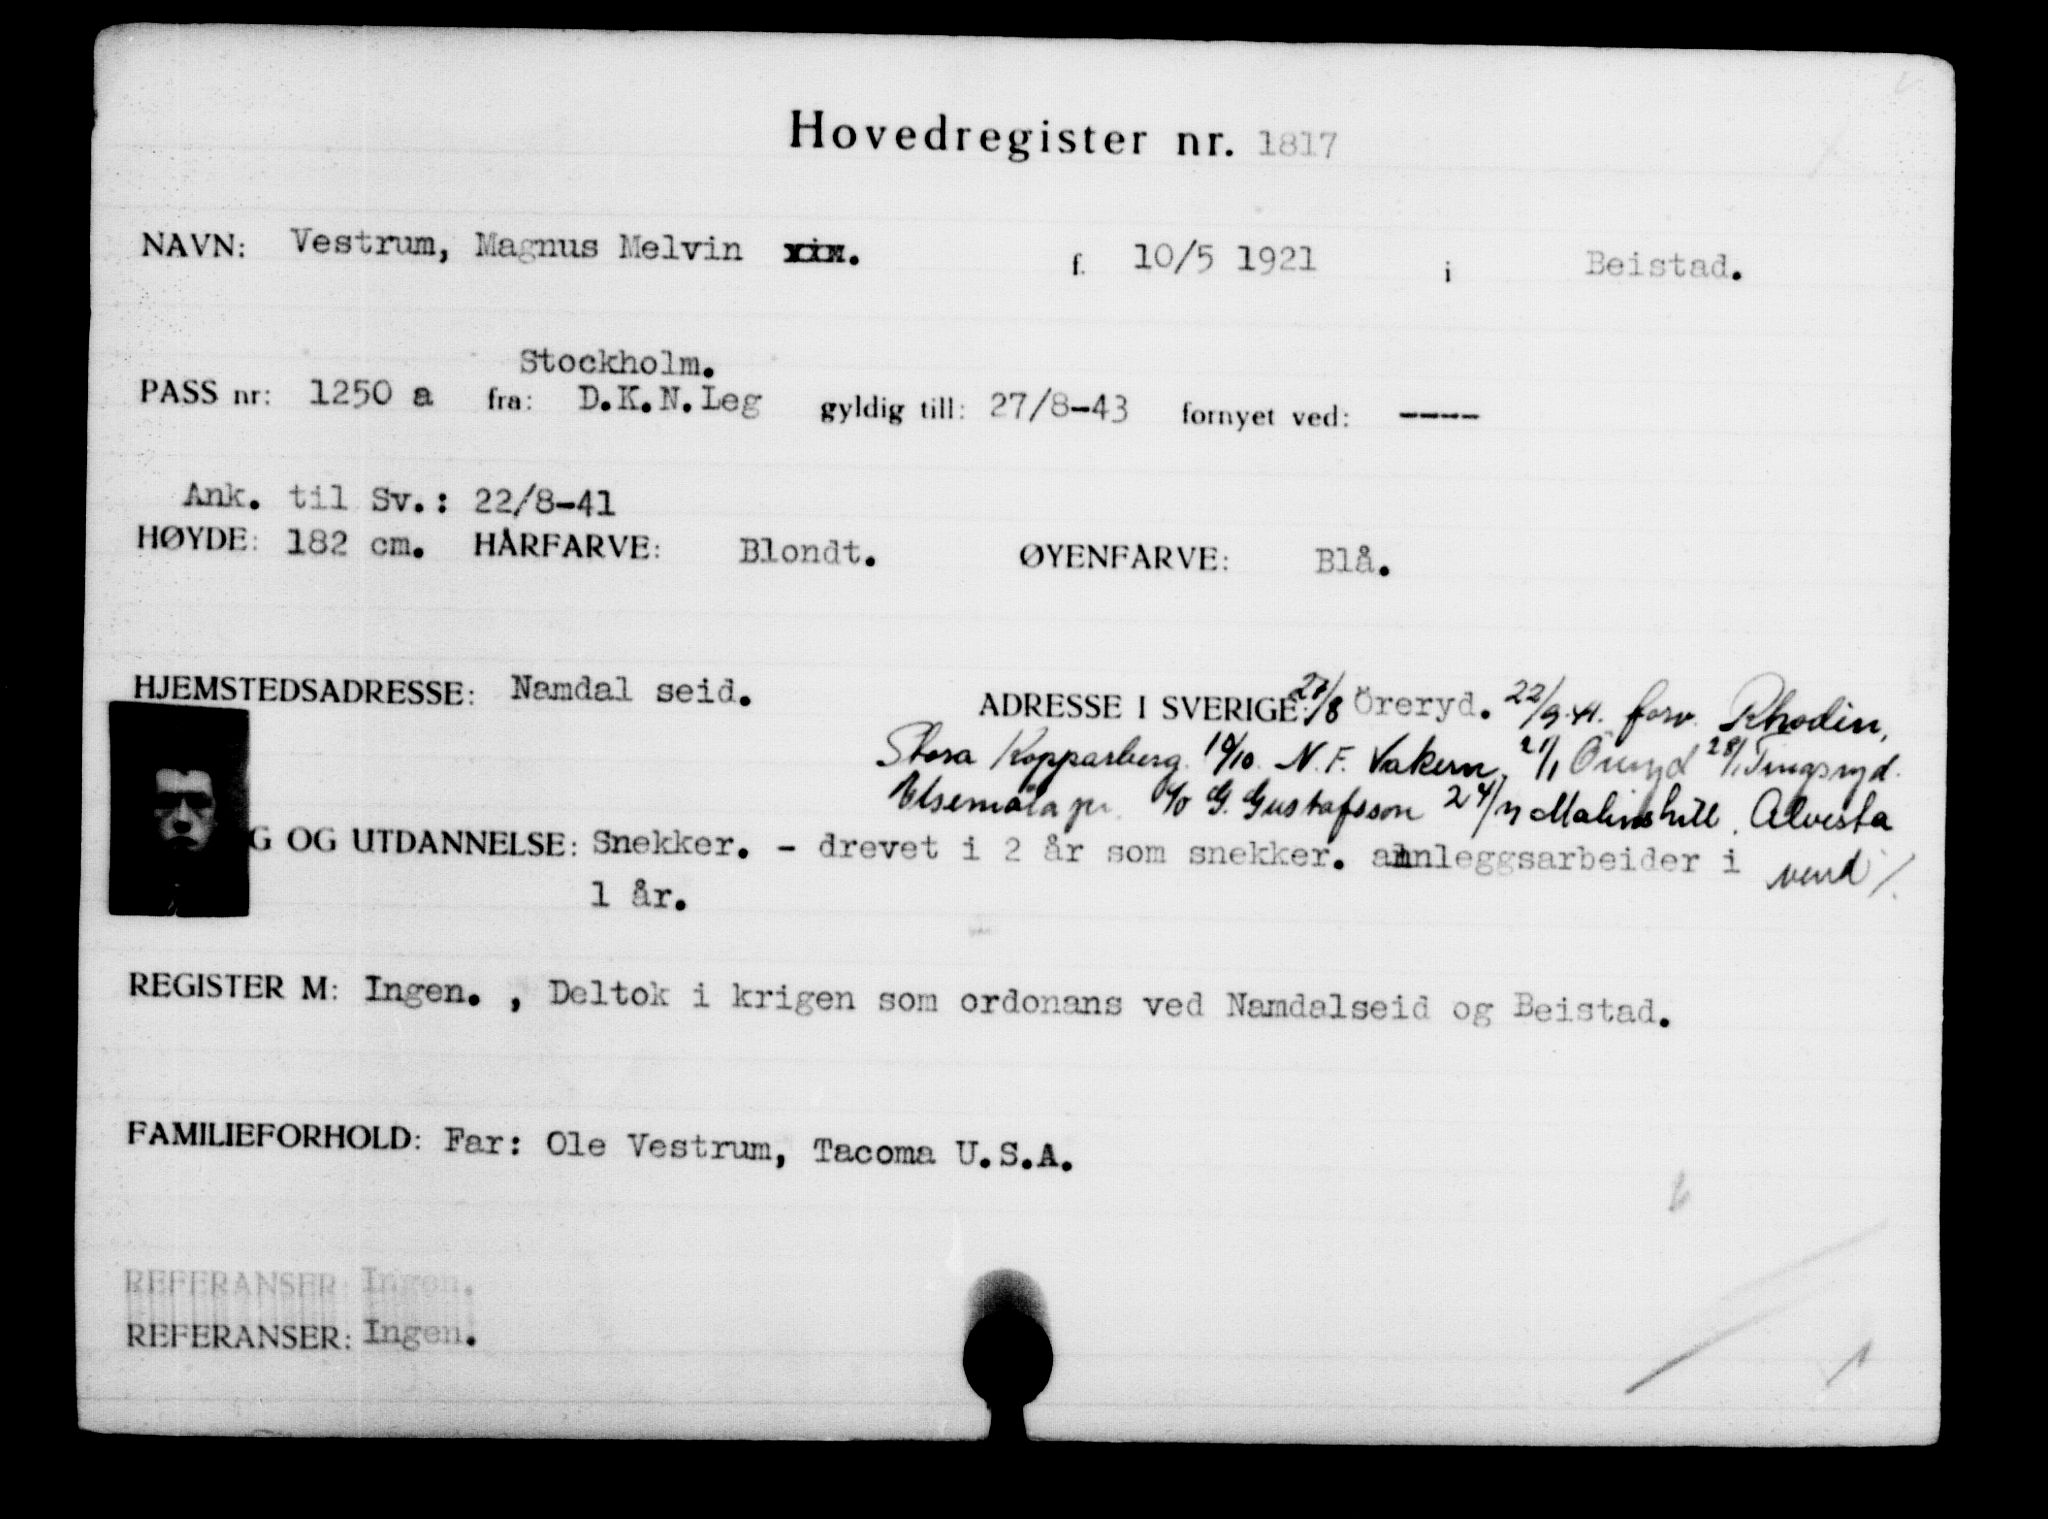 Hovedregister nr. 1817
NAVN: Vestrum, Magnus Melvin xix. f. 10/5 1921 i Beistad.
Stockholm.
PASS nr: 1250 a fra: D.K.N.Leg gyldig till: 27/8-43 fornyet ved: ----
Ank. til Sv.: 22/8-41
HØYDE: 182 cm. HÅRFARVE: Blondt. ØYENFARVE: Blå.
HJEMSTEDSADRESSE: Namdal seid. ADRESSE I SVERIGE: 27/8 Öreryd. 22/9-41. forv. Rhodin,
Stora Kopparberg. 10/10. N.F. Vakern, 21/1 Öreryd 28/1 Tingsryd.
Elsemåla pr. c/o G. Gustafsson 24/4 Malinshill. Alvesta
G OG UTDANNELSE: Snekker. - drevet i 2 år som snekker. anleggsarbeider i vend /.
1 år.
REGISTER M: Ingen. , Deltok i krigen som ordonans ved Namdalseid og Beistad.
FAMILIEFORHOLD: Far: Ole Vestrum, Tacoma U.S.A.
REFERANSER: Ingen.
REFERANSER: Ingen.